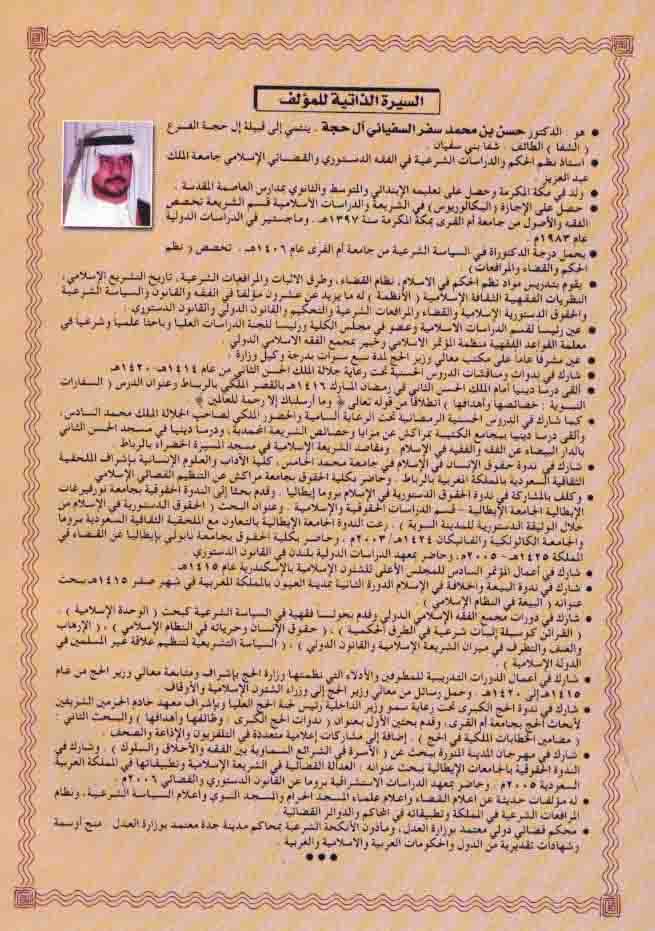 السيرة الذاتية للمؤلف
● هو : الدكتور حسن بن محمد سفر السفياني آل حجة . ينتمي إلى قبيلة إل حجة الفرع
( الشفا ) الطائف . شفا بني سفيان .
● استاذ نظم الحكم والدراسات الشرعية في الفقه الدستوري والقضائي الإسلامي جامعة الملك
عبد العزيز .
● ولد في مكة المكرمة وحصل على تعليمه الإبتدائي والمتوسط والثانوي بمدارس العاصمة المقدسة .
● حصل على الإجازة (البكالوريوس) في الشريعة والدراسات الأسلامية قسم الشريعة تخصص
الفقه والأصول من جامعة أم القرى بمكة المكرمة سنة ١٣٩٧هـ. وماجستير في الدراسات الدولية
عام ١٩٨٣م .
● يحمل درجة الدكتوراة في السياسة الشرعية من جامعة أم القرى عام ١٤٠٦هـ . تخصص ( نظم
الحكم والقضاء والمرافعات) .
● يقوم بتدريس مواد نظم الحكم في الاسلام، نظام القضاء، وطرق الاثبات والمرافعات الشرعية، تاريخ التشريع الإسلامي،
النظريات الفقهية الثقافة الإسلامية (الأنظمة) له ما يزيد عن عشرون مؤلفا في الفقه والقانون والسياسة الشرعية
والحقوق الدستورية الإسلامية والقضاء والمرافعات الشرعية والتحكيم والقانون الدولي والقانون الدستوري .
● عين رئيسا لقسم الدراسات الاسلامية وعضو في مجلس الكلية ورئيسا للجنة الدراسات العليا وباحثا علميا وشرعيا في
معلمة القواعد الفقهية منظمة المؤتمر الاسلامي وخبير بمجمع الفقه الاسلامي الدولي .
● عين مشرفا عاما على مكتب معالي وزير الحج لمدة سبع سنوات بدرجة وكيل وزارة .
● شارك في ندوات ومناقشات الدروس الحسنية تحت رعاية جلالة الملك الحسن الثاني من عام ١٤١٤هـ- ١٤٢٠هـ.
● ألقى درسا دينيا أمام الملك الحسن الثاني في رمضان المبارك ١٤١٦هـ بالقصر الملكي بالرباط وعنوان الدرس (السفارات
النبوية : خصائصها وأهدافها) انطلاقا من قوله تعالى ﴿ وما أرسلناك إلا رحمة للعالمين ﴾
● كما شارك في الدروس الحسنية الرمضانية تحت الرعاية السامية والحضور الملكي لصاحب الجلالة الملك محمد السادس،
وألقى درسا دينيا بجامع الكتبية بمراكش عن مزايا وخصائص الشريعة المحمدية، ودرسا دينيا في مسجد الحسن الثاني
بالدار البيضاء عن الفقه والفقيه في الإسلام . ومقاصد الشريعة الإسلامية في مسجد المسيرة الخضراء بالرباط .
● شارك في ندوة حقوق الإنسان في الإسلام في جامعة محمد الخامس، كلية الآداب والعلوم الإنسانية بإشراف الملحقية
الثقافية السعودية بالمملكة المغربية بالرباط . وحاضر بكلية الحقوق بجامعة مراكش عن التنظيم القضائي الإسلامي
● وكلف بالمشاركة في ندوة الحقوق الدستورية في الإسلام بروما إيطاليا . وقدم بحثا إلى الندوة الحقوقية بجامعة تورفيرغات
الإيطالية الجامعة الإيطالية - قسم الدراسات الحقوقية والإسلامية . وعنوان البحث ( الحقوق الدستورية في الإسلام من
خلال الوثيقة الدستورية للمدينة النبوية ) . رعت الندوة الجامعة الإيطالية بالتعاون مع الملحقية الثقافية السعودية بروما
والجامعة الكاثوليكية والفاتيكان ١٤٢٤هـ / ٢٠٠٣م . وحاضر بكلية الحقوق بجامعة نابولي بإيطاليا عن القضاء في
المملكة ١٤٢٥هـ - ٢٠٠٥م، وحاضر بمعهد الدراسات الدولية بلندن في القانون الدستوري .
● شارك في أعمال المؤتمر السادس للمجلس الأعلى للشئون الإسلامية بالإسكندرية عام ١٤١٥هـ .
● شارك في ندوة البيعة والخلافة في الإسلام الدورة الثانية بمدينة العيون بالمملكة المغربية في شهر صفر ١٤١٥هـ ببحث
عنوانه ( البيعة في النظام الإسلامي ) .
● شارك في دورات مجمع الفقه الإسلامي الدولي وقدم بحوثا فقهية في السياسة الشرعية كبحث ( الوحدة الإسلامية ) .
( القرائن كوسيلة إثبات شرعية في الطرق الحكمية ) ، ( حقوق الإنسان وحرياته في النظام الإسلامي ) ، ( الإرهاب
والعنف والتطرف في ميزان الشريعة الإسلامية والقانون الدولي ) ، ( السياسة التشريعية لتنظيم علاقة غير المسلمين في
الدولة الإسلامية ) .
● شارك في أعمال الدورات التدريبية للمطوفين والأدلاء التي نظمتها وزارة الحج بإشراف ومتابعة معالي وزير الحج من عام
١٤١٥هـ إلى ١٤٢٠هـ . وحمل رسائل من معالي وزير الحج إلى وزراء الشئون الإسلامية والأوقاف.
● شارك في ندوة الحج الكبرى تحت رعاية سمو وزير الداخلية رئيس لجنة الحج العليا وبإشراف معهد خادم الحرمين الشريفين
لأبحاث الحج بجامعة أم القرى، وقدم بحثين الأول بعنوان ( ندوات الحج الكبرى . وظائفها وأهدافها ) والبحث الثاني :
( مضامين الخطابات الملكية في الحج ) . إضافة إلى مشاركات إعلامية متعددة في التلفزيون والإذاعة والصحف .
● شارك في مهرجان المدينة المنورة ببحث عن ( الأسرة في الشرائع السماوية بين الفقه والأخلاق والسلوك ) . وشارك في
الندوة الحقوقية بالجامعات الإيطالية ببحث عنوانه : العدالة القضائية في الشريعة الإسلامية وتطبيقاتها في المملكة العربية
السعودية ٢٠٠٥م . وحاضر بمعهد الدراسات الاستشراقية بروما عن القانون الدستوري والقضائي ٢٠٠٦م .
● له مؤلفات حديثة عن اعلام القضاء واعلام علماء المسجد الحرام والمسجد النبوي واعلام السياسة الشرعية، ونظام
المرافعات الشرعية في المملكة وتطبيقاته في المحاكم والدوائر القضائية
● محكم قضائي دولي معتمد بوزارة العدل، ومأذون الأنكحة الشرعية بمحاكم مدينة جدة معتمد بوزارة العدل . منح أوسمة
وشهادات تقديرية من الدول والحكومات العربية والاسلامية والغربية .
●●●